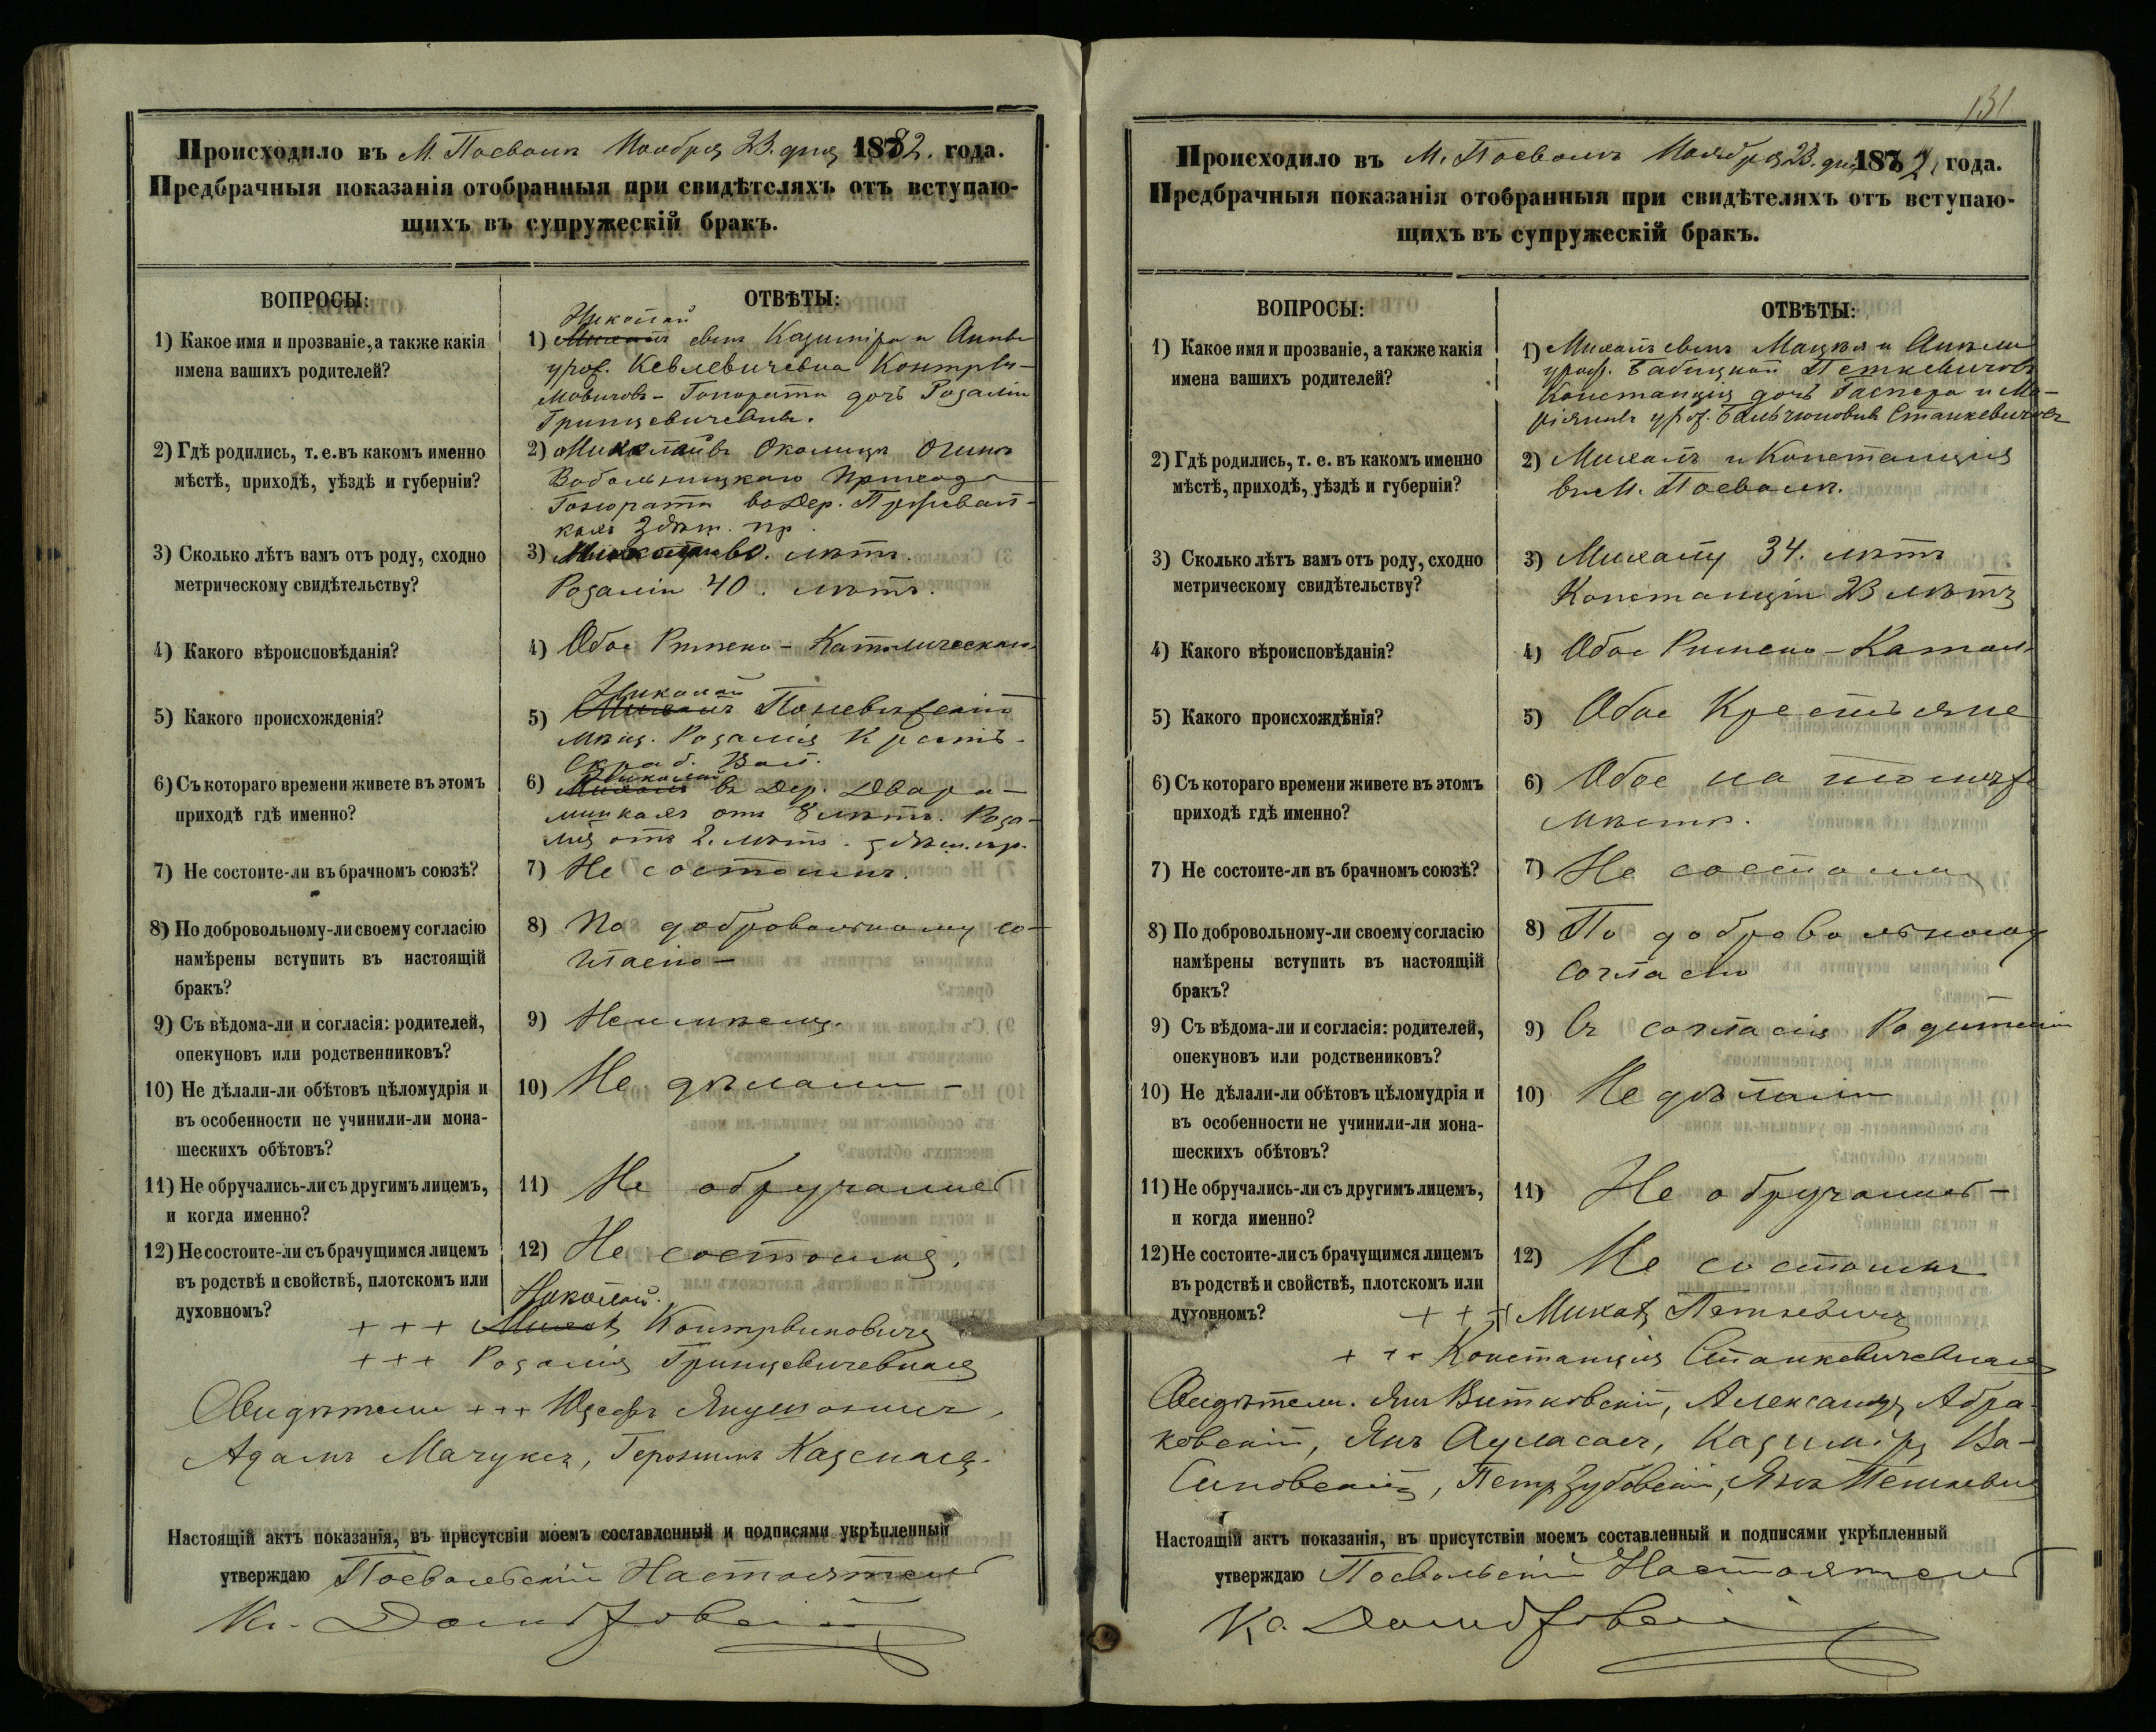 Происходило въ М. Посволи Ноября 23. дня 1882. года.
Предбрачныя показанія отобранныя при свидѣтеляхъ отъ вступаю-
щихъ въ супружескій бракъ.
ВОПРОСЫ:
ОТВѢТЫ:
1) Какое имя и прозваніе, а также какія
имена вашихъ родителей?
Николай
1) Михаилъ сынъ Казиміра и Анны
урож.
Гринцевичевны.
2) Гдѣ родились, т. е. въ какомъ именно
мѣстѣ, приходѣ, уѣздѣ и губерніи?
2) Николай въ Околицѣ
Вобольницкаго Прихода
во Дер.
пр.
3) Сколько лѣтъ вамъ отъ роду, сходно
метрическому свидѣтельству?
3) лѣтъ.
Розаліи 40. лѣтъ.
4) Какого вѣроисповѣданія?
4) Обое Римско-Католическаго
5) Какого происхожденія?
Николай
5) Михаилъ Поневѣжскій
мѣщ. Розалія Крестъ.
Вол.
6) Съ котораго времени живете въ этомъ
приходѣ гдѣ именно?
Николай
6) Михаилъ въ Дер.
отъ 8 лѣтъ. Роза-
лія отъ 2. лѣтъ. здѣш. пр.
7) Не состоите-ли въ брачномъ союзѣ?
7) Не состоимъ.
8) По добровольному-ли своему согласію
намѣрены вступить въ настоящій
бракъ?
8) По добровольному со-
гласію-
9) Съ вѣдома-ли и согласія: родителей,
опекуновъ или родственниковъ?
9) Неимѣемъ.
10) Не дѣлали-ли обѣтовъ цѣломудрія и
въ особенности не учинили-ли мона-
шескихъ обѣтовъ?
10) Не дѣлали-
11) Не обручались-ли съ другимъ лицемъ,
и когда именно?
11) Не обручались
12) Не состоите-ли съ брачущимся лицемъ
въ родствѣ и свойствѣ, плотскомъ или
духовномъ?
12) Не состоимъ.
Николай.
+++ Михаъ Контрвимовичъ
+++ Розалія Гринцевичевная
Свидѣтели +++ Юзефъ Якушонисъ,
Адамъ Мачукъ, Геронимъ
Настоящій актъ показанія, въ присутсвіи моемъ составленный и подписями укрѣпленный
утверждаю Посвольскій Настоятель
Кс. Домбровскій
131
Происходило въ М. Посволь Ноября 23. дня 1882. года.
Предбрачныя показанія отобранныя при свидѣтеляхъ отъ вступаю-
щихъ въ супружескій бракъ.
ВОПРОСЫ:
ОТВѢТЫ:
1) Какое имя и прозваніе, а также какія
имена вашихъ родителей?
1) Михаилъ сынъ Мацѣя и Анели
урож. Бабицкой Петкевичовъ
Констанція дочь Гаспера и Ма-
ріянны урож. Станкевичовъ
2) Гдѣ родились, т. е. въ какомъ именно
мѣстѣ, приходѣ, уѣздѣ и губерніи?
2) Михаилъ и Констанція
въ М. Посволи.
3) Сколько лѣтъ вамъ отъ роду, сходно
метрическому свидѣтельству?
3) Михаилу 34. лѣтъ
Констанціи 23 лѣтъ
4) Какого вѣроисповѣданія?
4) Обое Римско-Катол.
5) Какого происхождѣнія?
5) Обое Крестьяне
6) Съ котораго времени живете въ этомъ
приходѣ гдѣ именно?
6) Обое на томъ же
мѣстѣ.
7) Не состоите-ли въ брачномъ союзѣ?
7) Не состоимъ
8) По добровольному-ли своему согласію
намѣрены вступить въ настоящій
бракъ?
8) По добровольному
согласію
9) Съ вѣдома-ли и согласія: родителей,
опекуновъ или родствениковъ?
9) Съ согласія Родителей
10) Не дѣлали-ли обѣтовъ цѣломудрія и
въ особенности не учинили-ли мона-
шескихъ обѣтовъ?
10) Не дѣлали
11) Не обручались-ли съ другимъ лицемъ,
и когда именно?
11) Не обручались-
12) Не состоите-ли съ брачущимся лицемъ
въ родствѣ и свойствѣ, плотскомъ или
духовномъ?
12) Не состоимъ
+++ Михаъ Петкевичъ
+++ Констанція Станкевичевная
Свидѣтели. Янъ Витковскій, Александръ Абра-
ковскій, Янъ Казимиръ Ва-
синовскій, Петръ Зубовскій, Янъ Петкевичъ
Настоящій актъ показанія, въ присутствіи моемъ составленный и подписями укрѣпленный
утверждаю Посвольскій Настоятель
Кс. Домбровскій